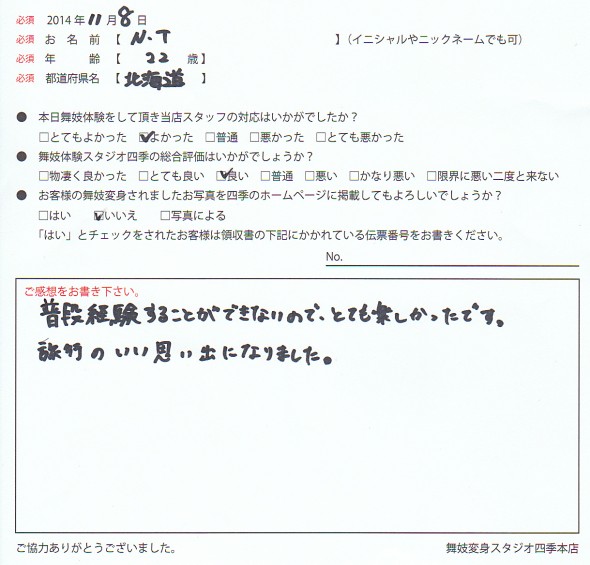 必須 2014年11月8日
必須 お名前【 N.T 】（イニシャルやニックネームでも可）
必須 年齢【 22 歳】
必須 都道府県名【 北海道 】
● 本日舞妓体験をして頂き当店スタッフの対応はいかがでしたか？
□とてもよかった ☑よかった □普通 □悪かった □とても悪かった
● 舞妓体験スタジオ四季の総合評価はいかがでしょうか？
□物凄く良かった □とても良い ☑良い □普通 □悪い □かなり悪い □限界に悪い二度と来ない
● お客様の舞妓変身されましたお写真を四季のホームページに掲載してもよろしいでしょうか？
□はい ☑いいえ □写真による
「はい」とチェックをされたお客様は領収書の下記にかかれている伝票番号をお書きください。
No.
ご感想をお書き下さい。
普段経験することができないので、とても楽しかったです。
旅行のいい思い出になりました。
ご協力ありがとうございました。 舞妓変身スタジオ四季本店